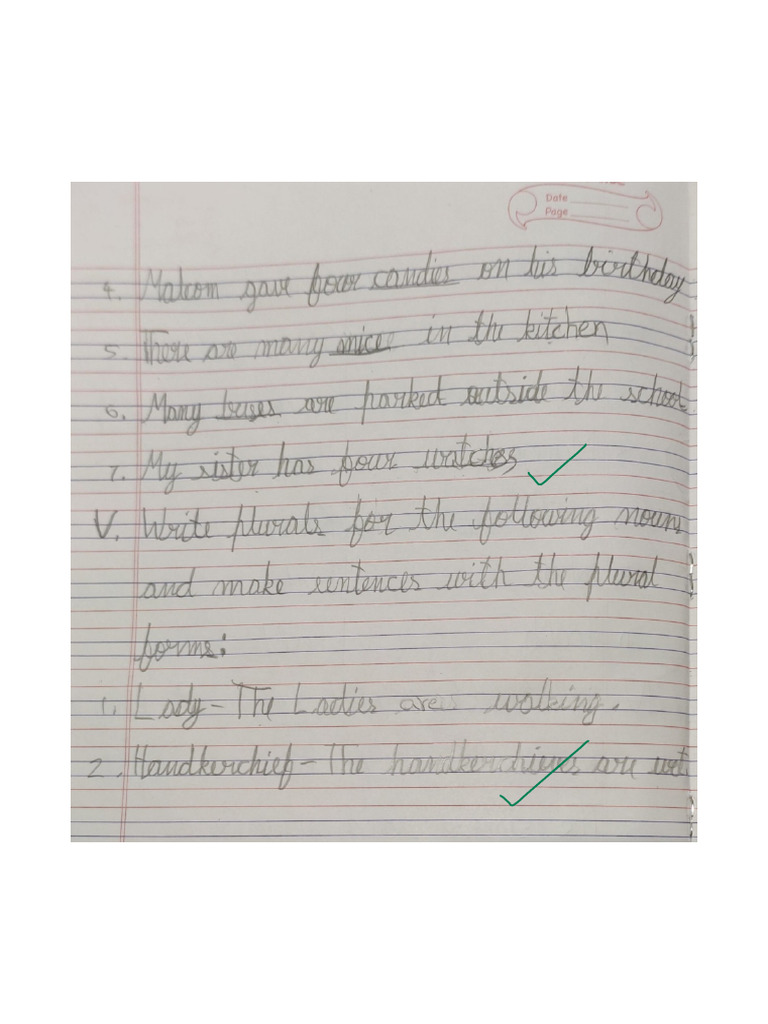 Date
Page
4. Malcom gave four candies on his birthday
5. There are many mice in the kitchen
6. Many buses are parked outside the school
7. My sister has four watches
V. Write plurals for the following nouns
and make sentences with the plural
forms:
1. Lady - The Ladies are walking.
2. Handkerchief - The handkerchieves are wet